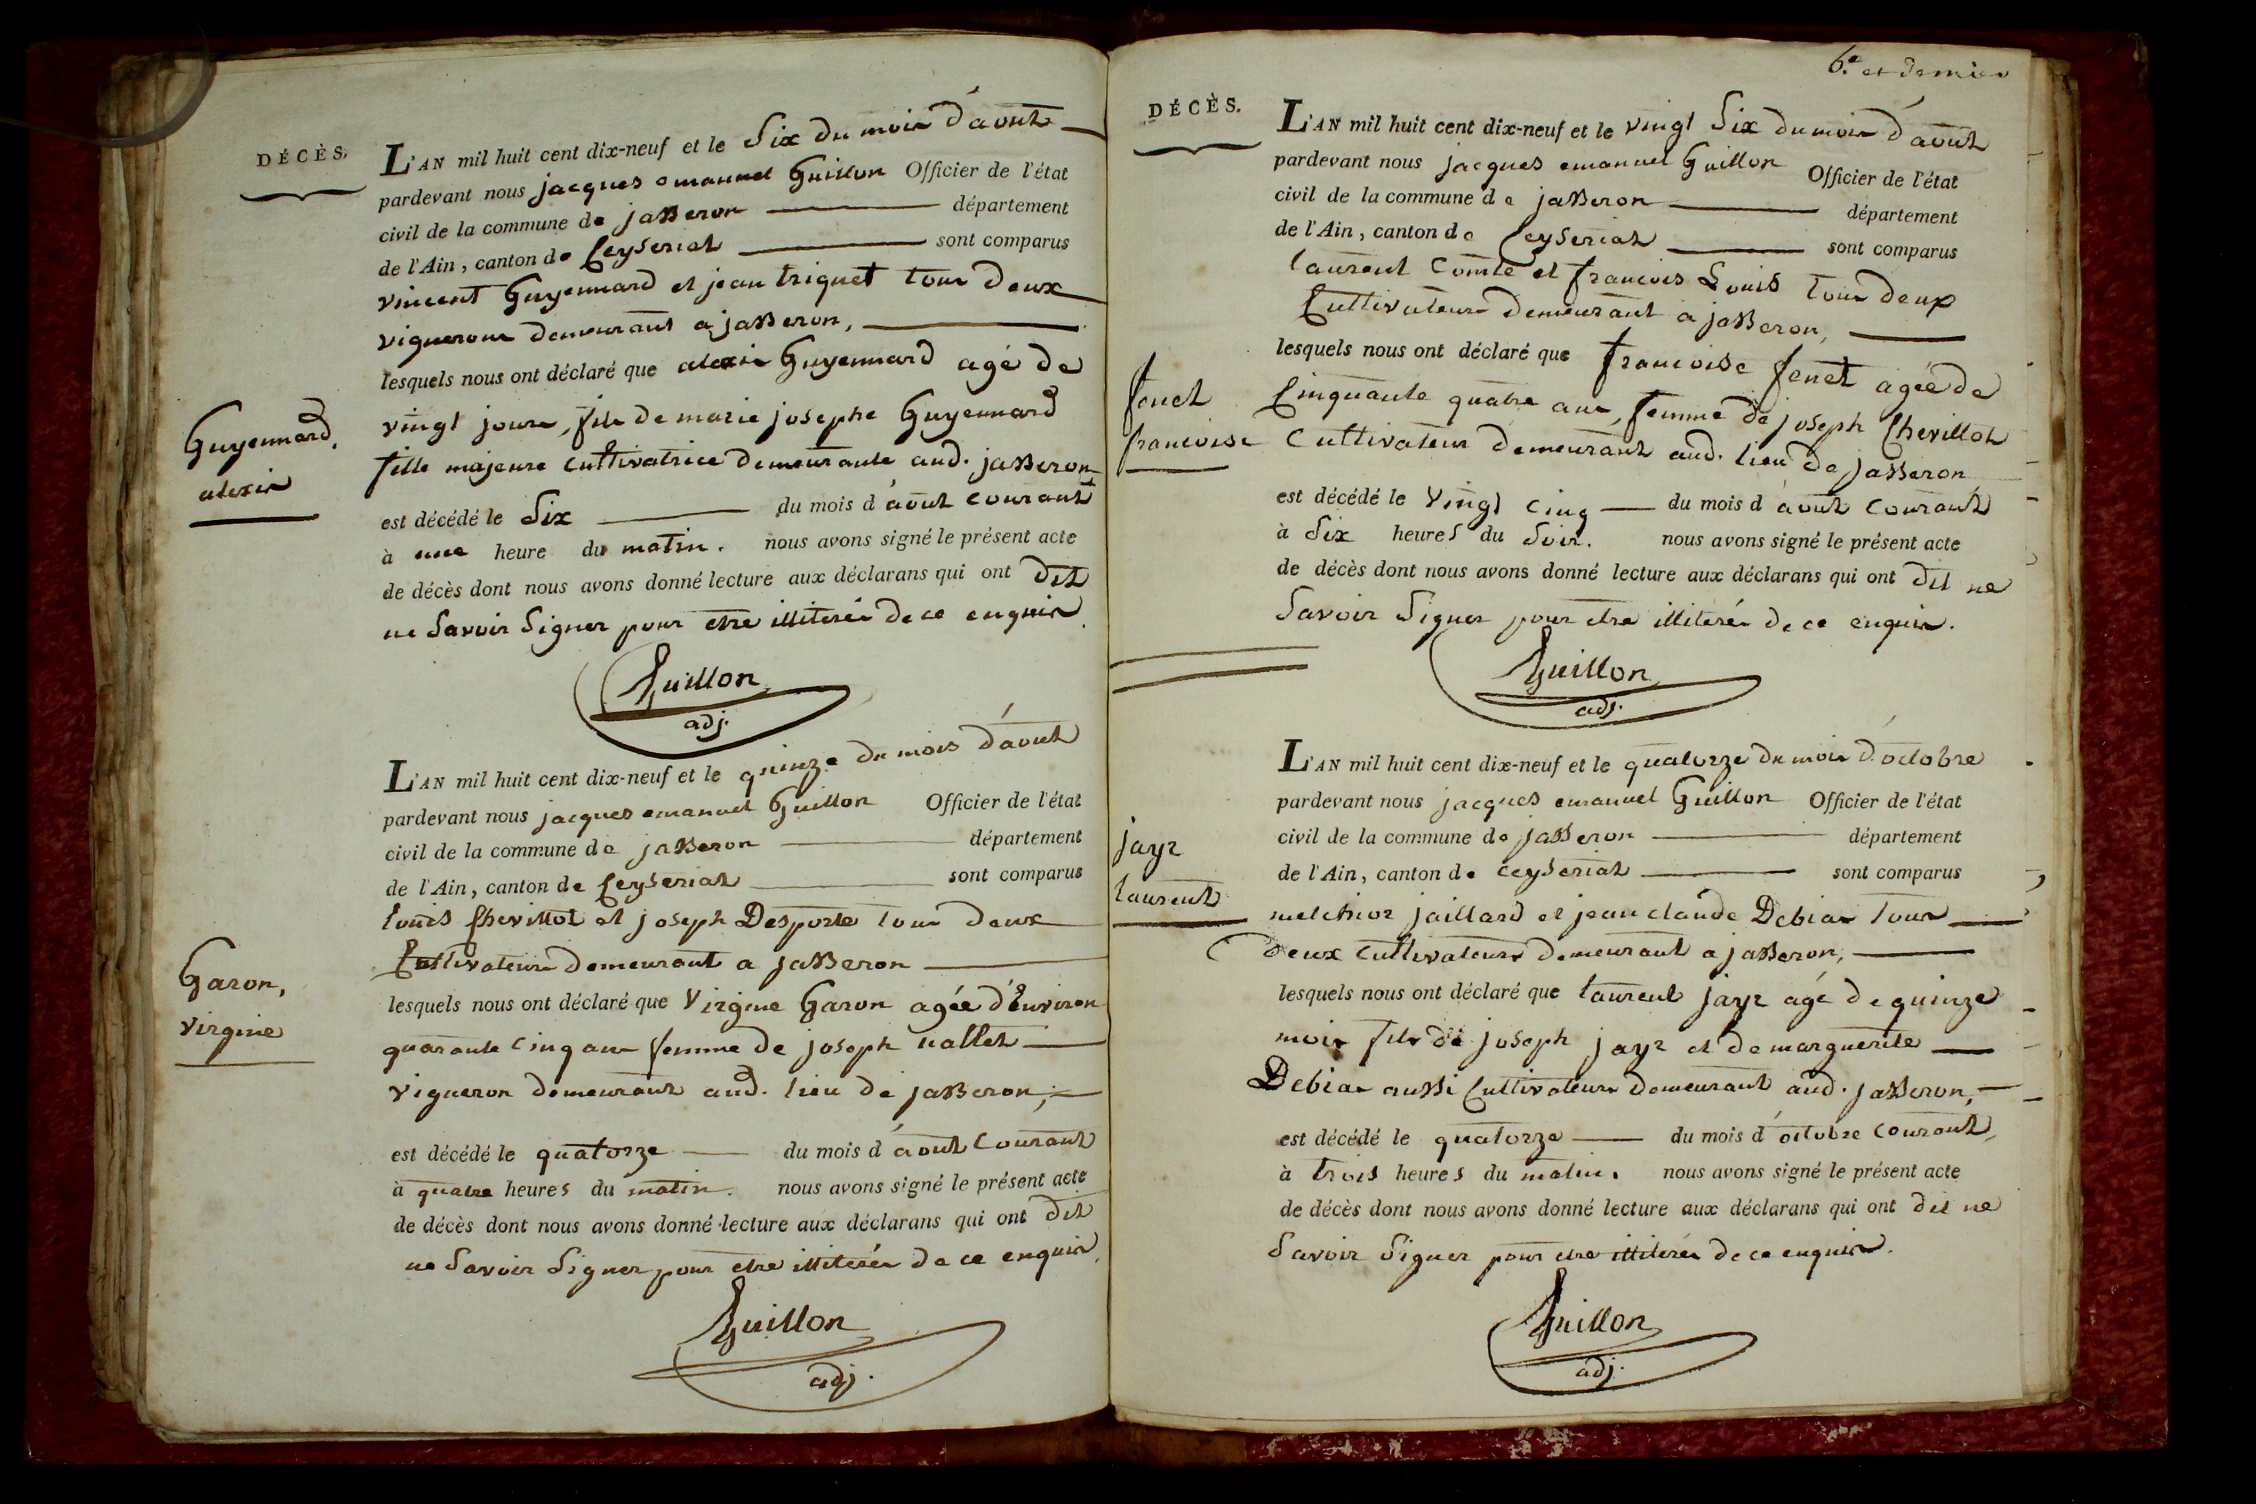 DÉCÈS.
L'AN mil huit cent dix-neuf et le Six du mois d'aout
pardevant nous jacques emanuel Guillon Officier de l'état
civil de la commune de jasseron département
de l'Ain, canton de Ceyseriat sont comparus
vincent Guyennard et jean triquet tous deux
vignerons demeurants a jasseron,
lesquels nous ont déclaré que alexis Guyennard agé de
Guyennard,
alexis
vingt jours, fils de marie josephe Guyennard
fille majeure cultivatrice demeurante aud. jasseron
est décédé le Six du mois d'aout courant
à une heure du matin. nous avons signé le présent acte
de décès dont nous avons donné lecture aux déclarans qui ont dit
ne Savoir Signer pour etre illiterés de ce enquis.
Guillon
adj.
L'AN mil huit cent dix-neuf et le quinze du mois d'aout
pardevant nous jacques emanuel Guillon Officier de l'état
civil de la commune de jasseron département
de l'Ain, canton de Ceyseriat sont comparus
Louis Chevillot et joseph Desporte tous deux
Cultivateurs demeurant a jasseron
Garon,
virginie
lesquels nous ont déclaré que Virginie Garon agée d'Environ
quarante Cinq ans femme de joseph nallet
vigneron demeurant aud. lieu de jasseron,
est décédé le quatorze du mois d'aout Courant
à quatre heures du matin. nous avons signé le présent acte
de décès dont nous avons donné lecture aux déclarans qui ont dit
ne Savoir Signer pour etre illiterés de ce enquis.
Guillon
adj.
6.e et dernier
DÉCÈS.
L'AN mil huit cent dix-neuf et le vingt Six du mois d'aout
pardevant nous jacques emanuel Guillon Officier de l'état
civil de la commune de jasseron département
de l'Ain, canton de Ceyseriat sont comparus
laurent Comte et francois Louis tous deux
Cultivateurs demeurant a jasseron,
lesquels nous ont déclaré que francoise fenet agée de
fenet
francoise
Cinquante quatre ans, femme de joseph Chevillot
Cultivateur demeurant aud. lieu de jasseron
est décédé le Vingt Cinq du mois d'aout Courant
à Six heures du Soir. nous avons signé le présent acte
de décès dont nous avons donné lecture aux déclarans qui ont dit ne
Savoir Signer pour etre illiterés de ce enquis.
Guillon
adj.
L'AN mil huit cent dix-neuf et le quatorze du mois d'octobre
pardevant nous jacques emanuel Guillon Officier de l'état
civil de la commune de jasseron département
de l'Ain, canton de ceyseriat sont comparus
jayr
laurent
melchior jaillard et jean claude Debias tous
deux cultivateurs demeurant a jasseron,
lesquels nous ont déclaré que laurent jayr agé de quinze
mois fils de joseph jayr et de marguerite
Debias aussi Cultivateurs demeurant aud. jasseron,
est décédé le quatorze du mois d'octobre courant,
à trois heures du matin. nous avons signé le présent acte
de décès dont nous avons donné lecture aux déclarans qui ont dit ne
Savoir Signer pour etre illiterés de ce enquis.
Guillon
adj.